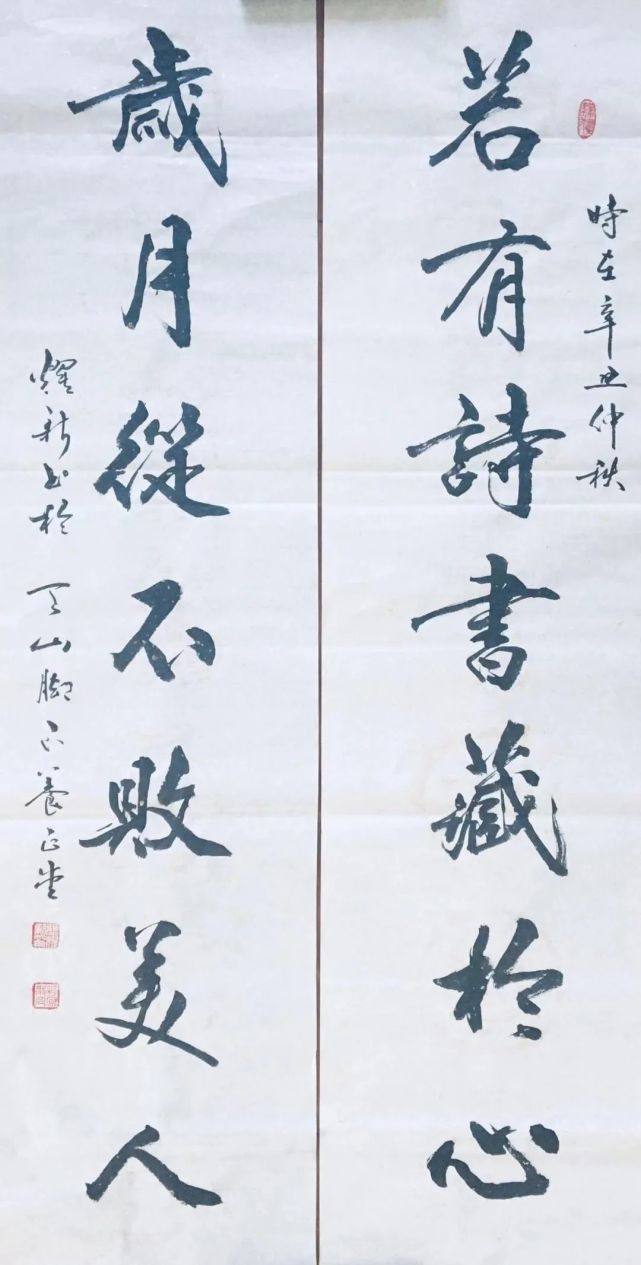 時在辛丑仲秋
若有詩書藏於心
歲月從不敗美人
耀新書於 天山腳下養正堂